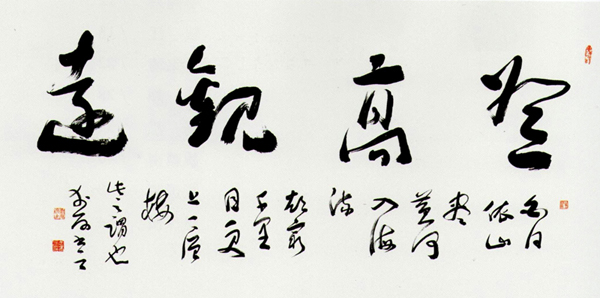 登高觀遠
白日
依山
盡
黄河
入海
流
欲窮
千里
目更
上一層
樓
此之謂也